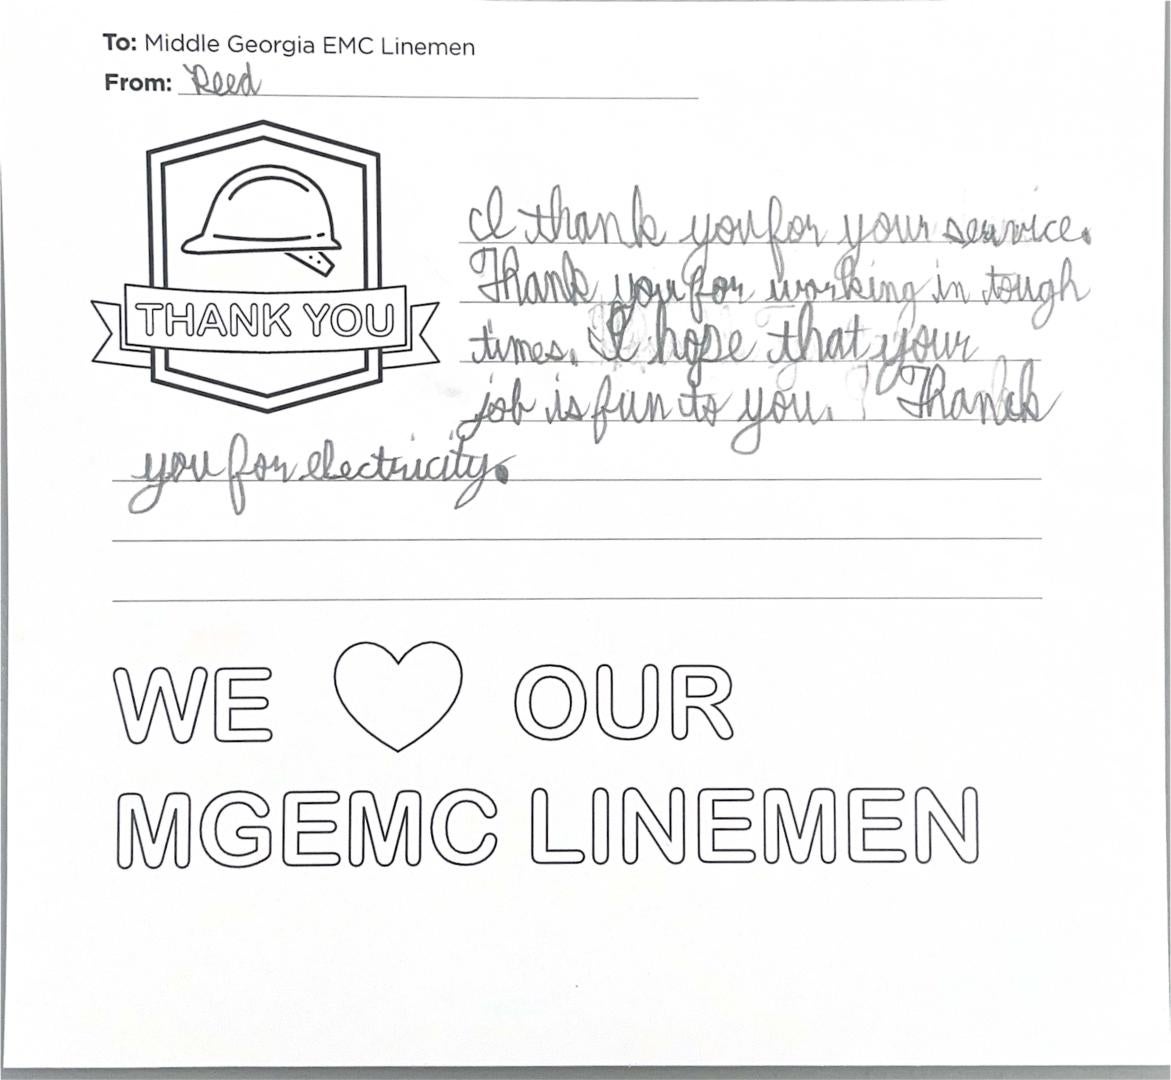 To: Middle Georgia EMC Linemen
From: Reed
THANK YOU
I thank you for your service.
Thank you for working in tough
times. I hope that your
job is fun to you. Thanck
you for electricity.
WE OUR
MGEMC LINEMEN